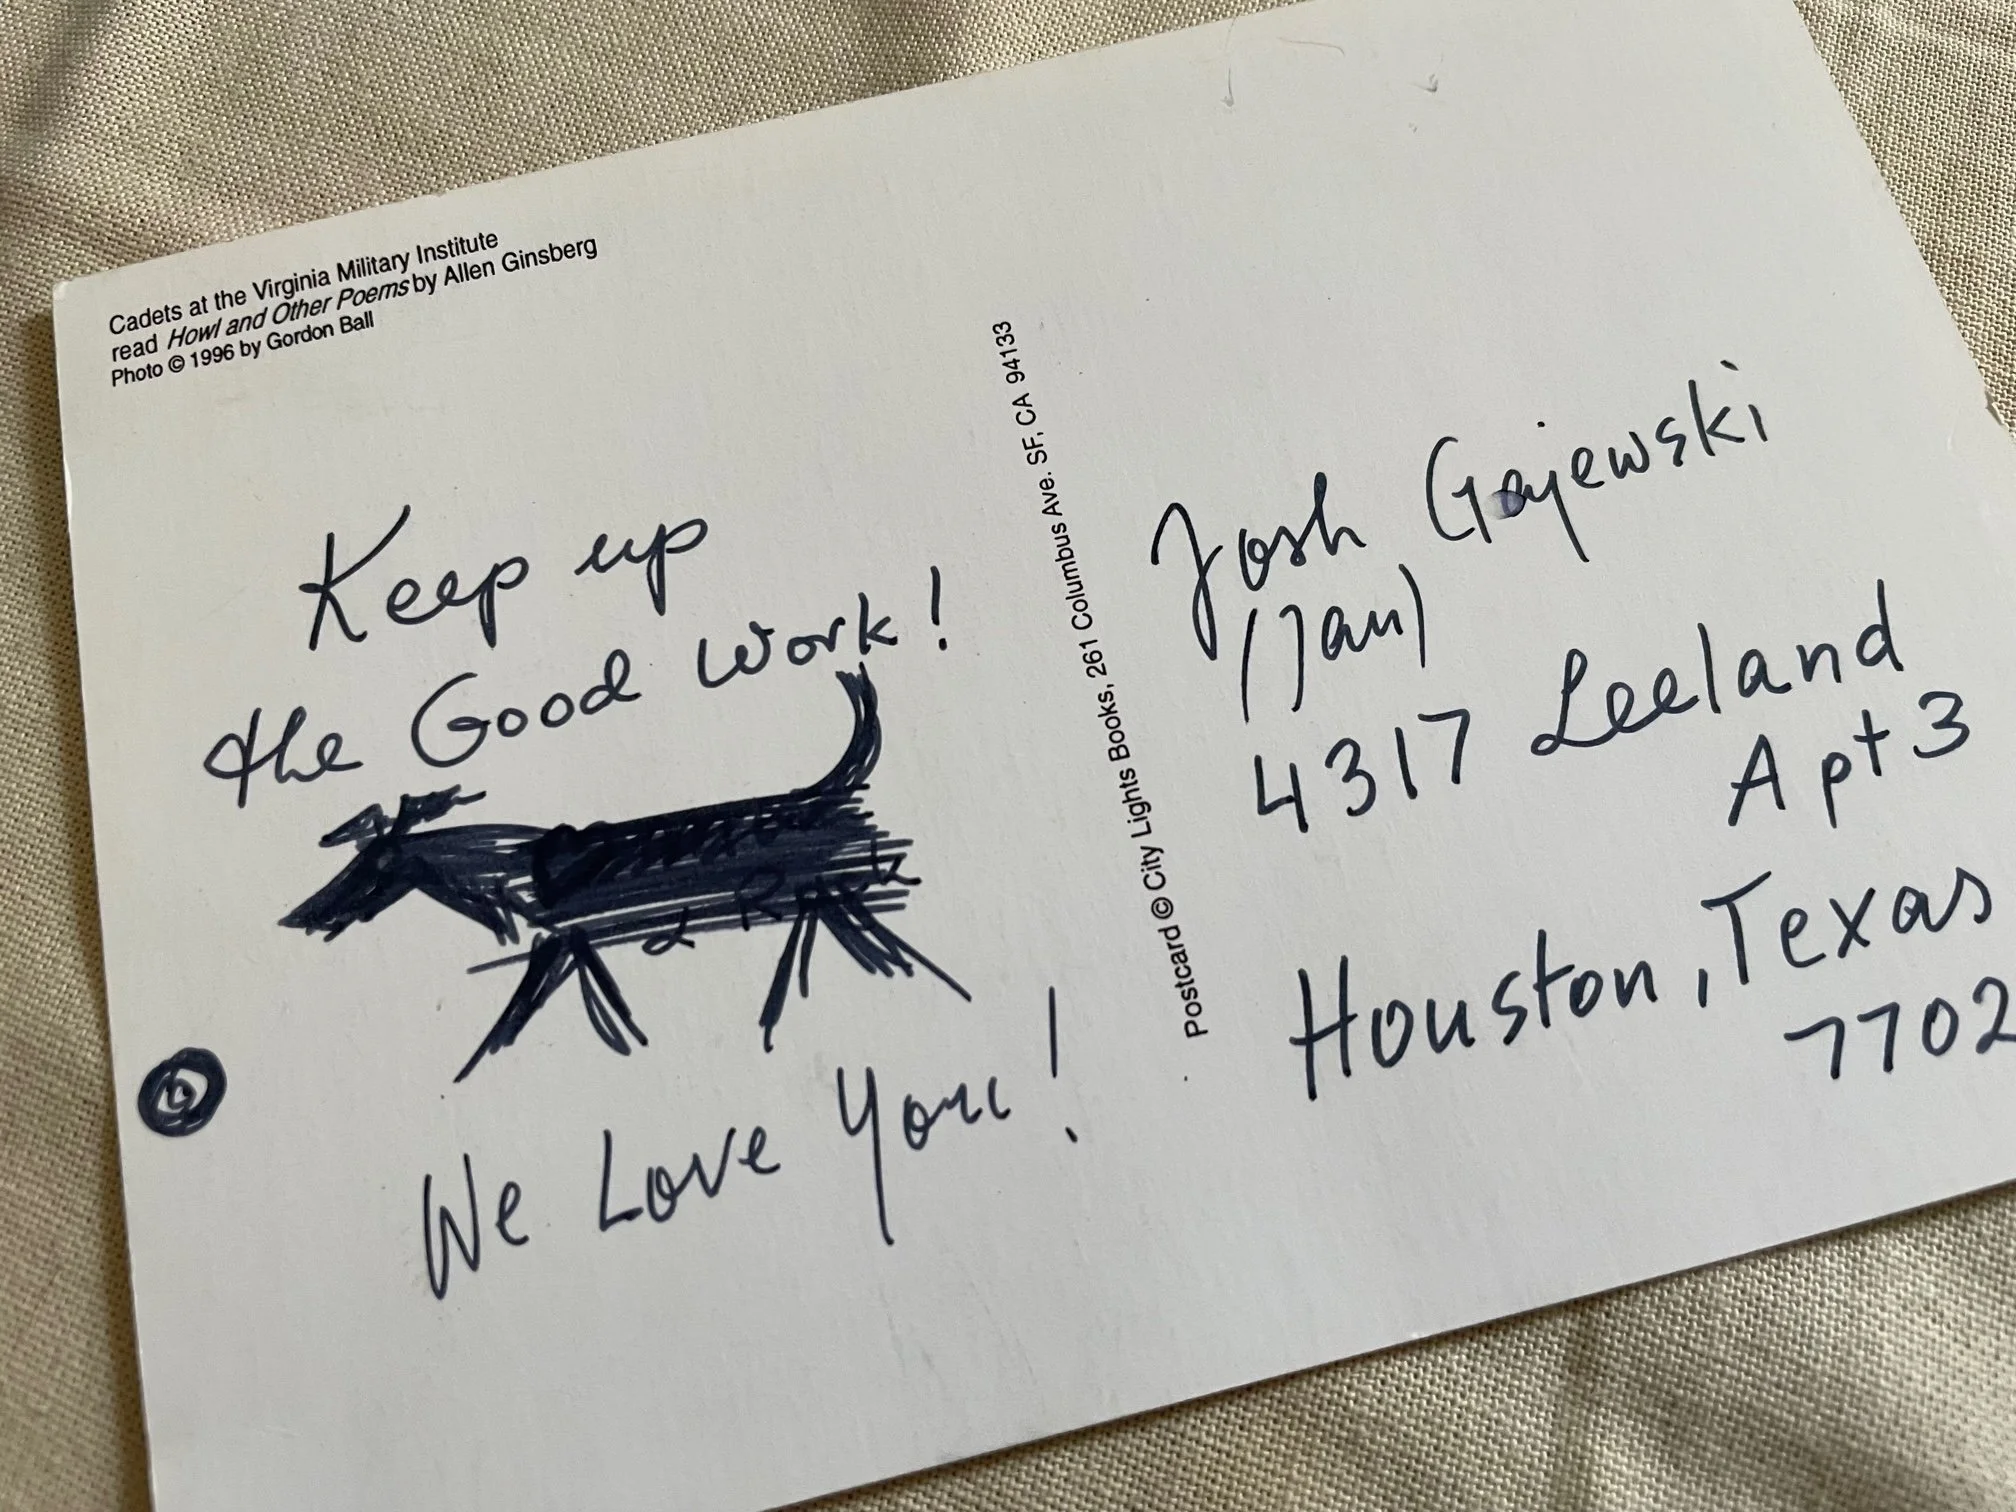 Cadets at the Virginia Military Institute
read Howl and Other Poems by Allen Ginsberg
Photo © 1996 by Gordon Ball
Keep up
the Good Work!
We Love You!
Postcard © City Lights Books, 261 Columbus Ave. SF, CA 94133
Josh Gajewski
4317 Leeland
Apt 3
Houston, Texas
7702